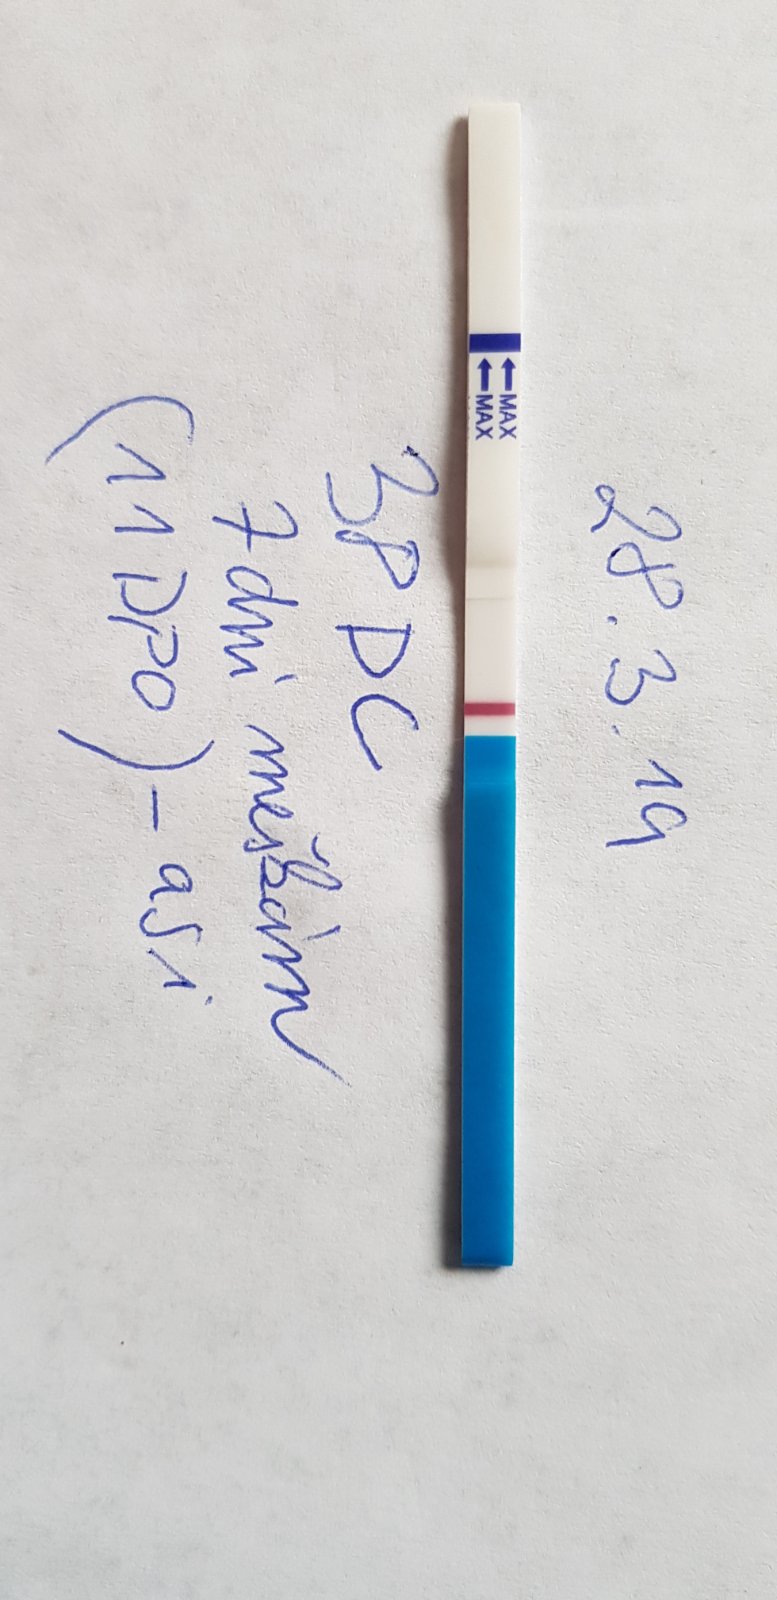 28.3.19
MAX
MAX
38 DC
7 dni meškám
(11 DPO) - asi